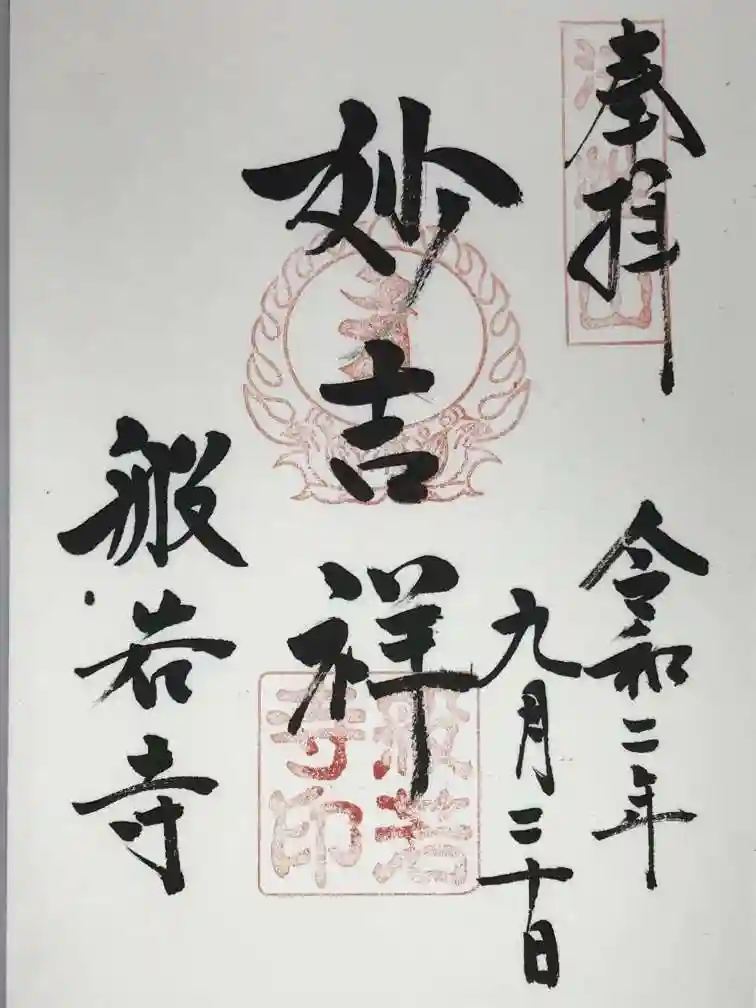 奉拝
令和二年
九月二十日
妙吉祥
般若寺
般若
寺印